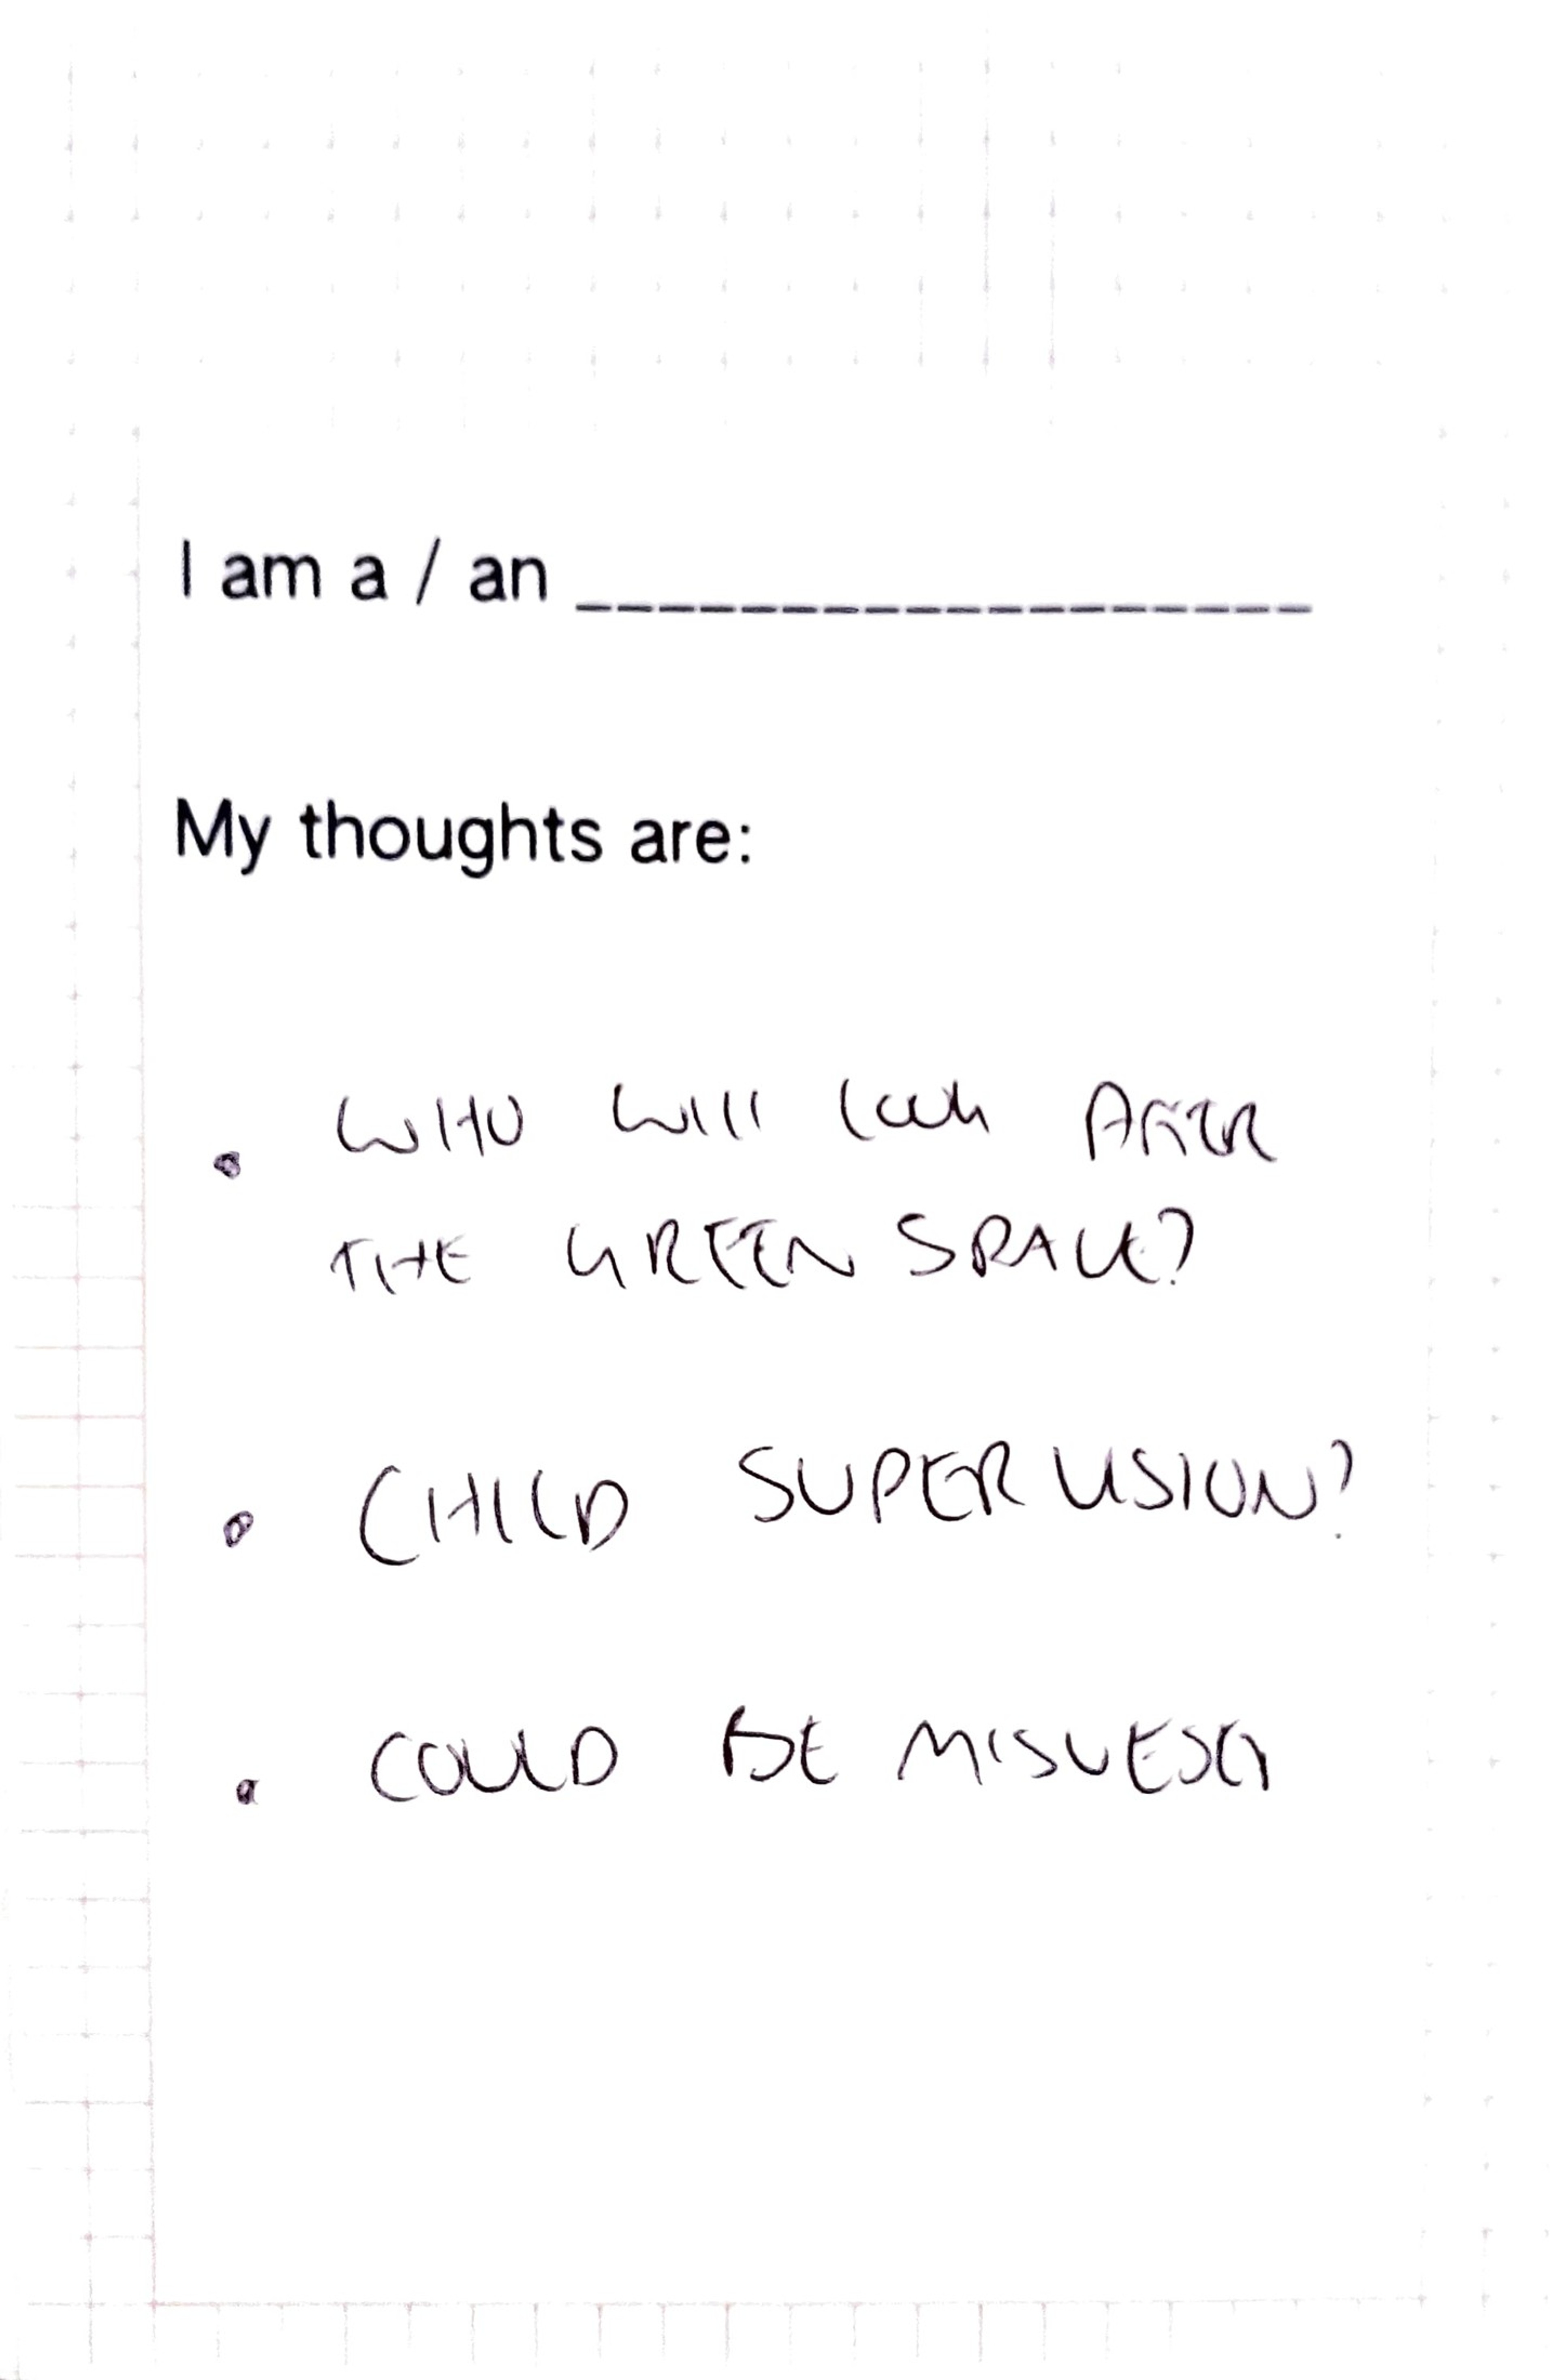 I am a / an __________________
My thoughts are:
• WHO WILL LOOK AFTER
THE GREEN SPACE?
• CHILD SUPERVISION?
• COULD BE MISUESD